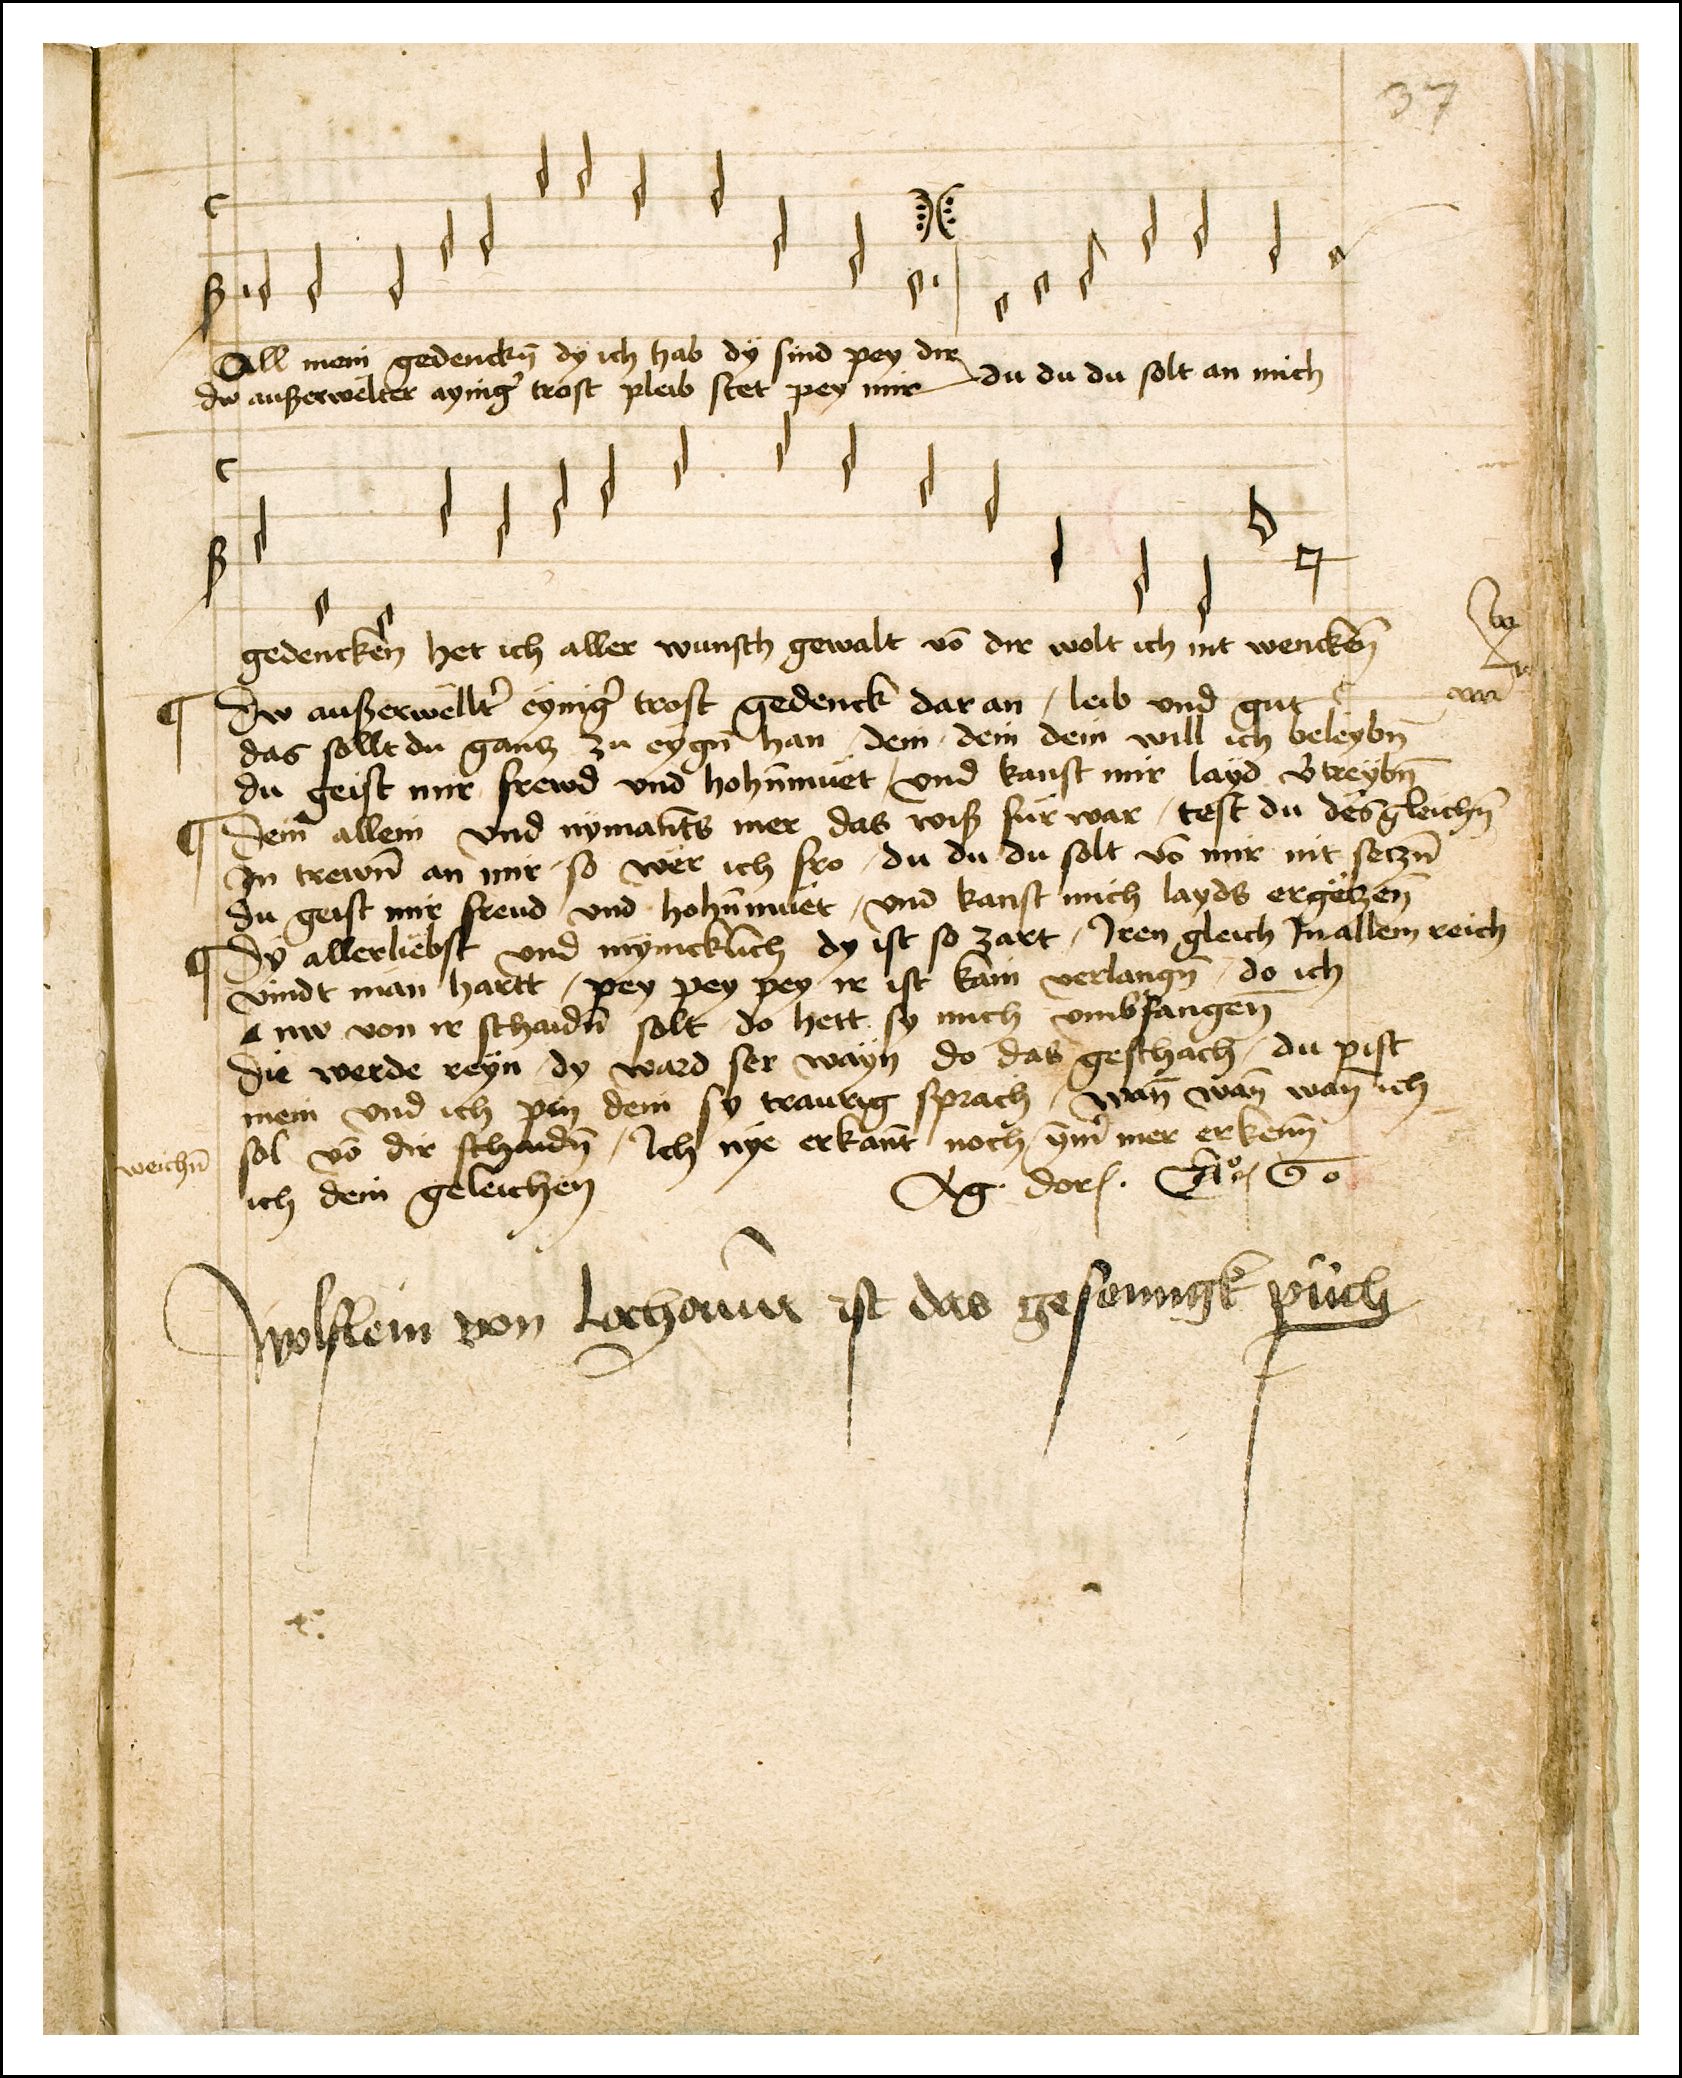 37
All mein gedenckn̄ dy ich hab dÿ sind pey dir
dw außerwelter aynig' trost pleib stet pey mir du du du solt an mich
gedencken het ich aller wunsch gewalt võ dir wolt ich nit wencken̄
Dw außerwellt' eÿnig' trost gedenck dar an / leib vnd gut
das sollt du gantz zu eygn̄ han / dein dein dein will ich beleÿbn̄
du geist mir frewd vnd hohn̄muet / vnd kanst mir layd v'treÿbn̄
Dein allein vnd nÿman̄ts mer das wiß fürwar / test du desgleichn̄
In trewn̄ an mir so wër ich fro / du du du solt võ mir nit setzn̄
du geist mir freud vnd hohn̄muet / vnd kanst mich layds ergëtzen
Dÿ allerliebst vnd mÿnicklich dy ist so zart / Iren gleich In allem reich
vindt man hartt / pey pey pey ir ist kain verlangn̄ / do ich
nw von ir schaidn̄ solt do hett sy mich vmbfangen
Die werde reÿn dy ward ser waÿn do das geschach / du pist
mein vnd ich pin dein sy traurig sprach / wan̄ wan̄ wan̄ ich
weichn̄
sol võ dir schaidn̄ / Ich nÿe erkan̄t noch ÿm'mer erkenn̄
ich dein geleichen
Wolflein von Lochamer ist das gesenngk püch